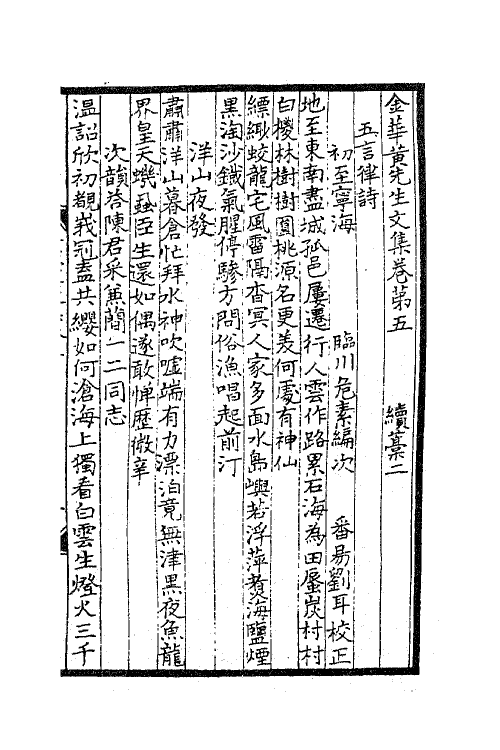 金華黃先生文集卷第五　續藁二
五言律詩　臨川危素編次　番昜劉耳校正
初至寧海
地至東南盡城孤邑屢遷行人雲作路累石海為田蜃炭村村
白榪林樹樹圓桃源名更羙何處有神仙
縹緲蛟龍宅風雷隔杳冥人家多面水島嶼若浮萍煮海鹽煙
黑淘沙鐵氣腥停驂方問俗漁唱起前汀
洋山夜發
肅肅洋山暮倉忙拜水神吹噓端有力漂泊竟無津黑夜魚龍
界皇天蟣蝨臣生還如偶遂敢憚歷微辛
次韻荅陳君采兼簡一二同志
温詔欣初覩峩冠盍共纓如何滄海上獨看白雲生燈火三千